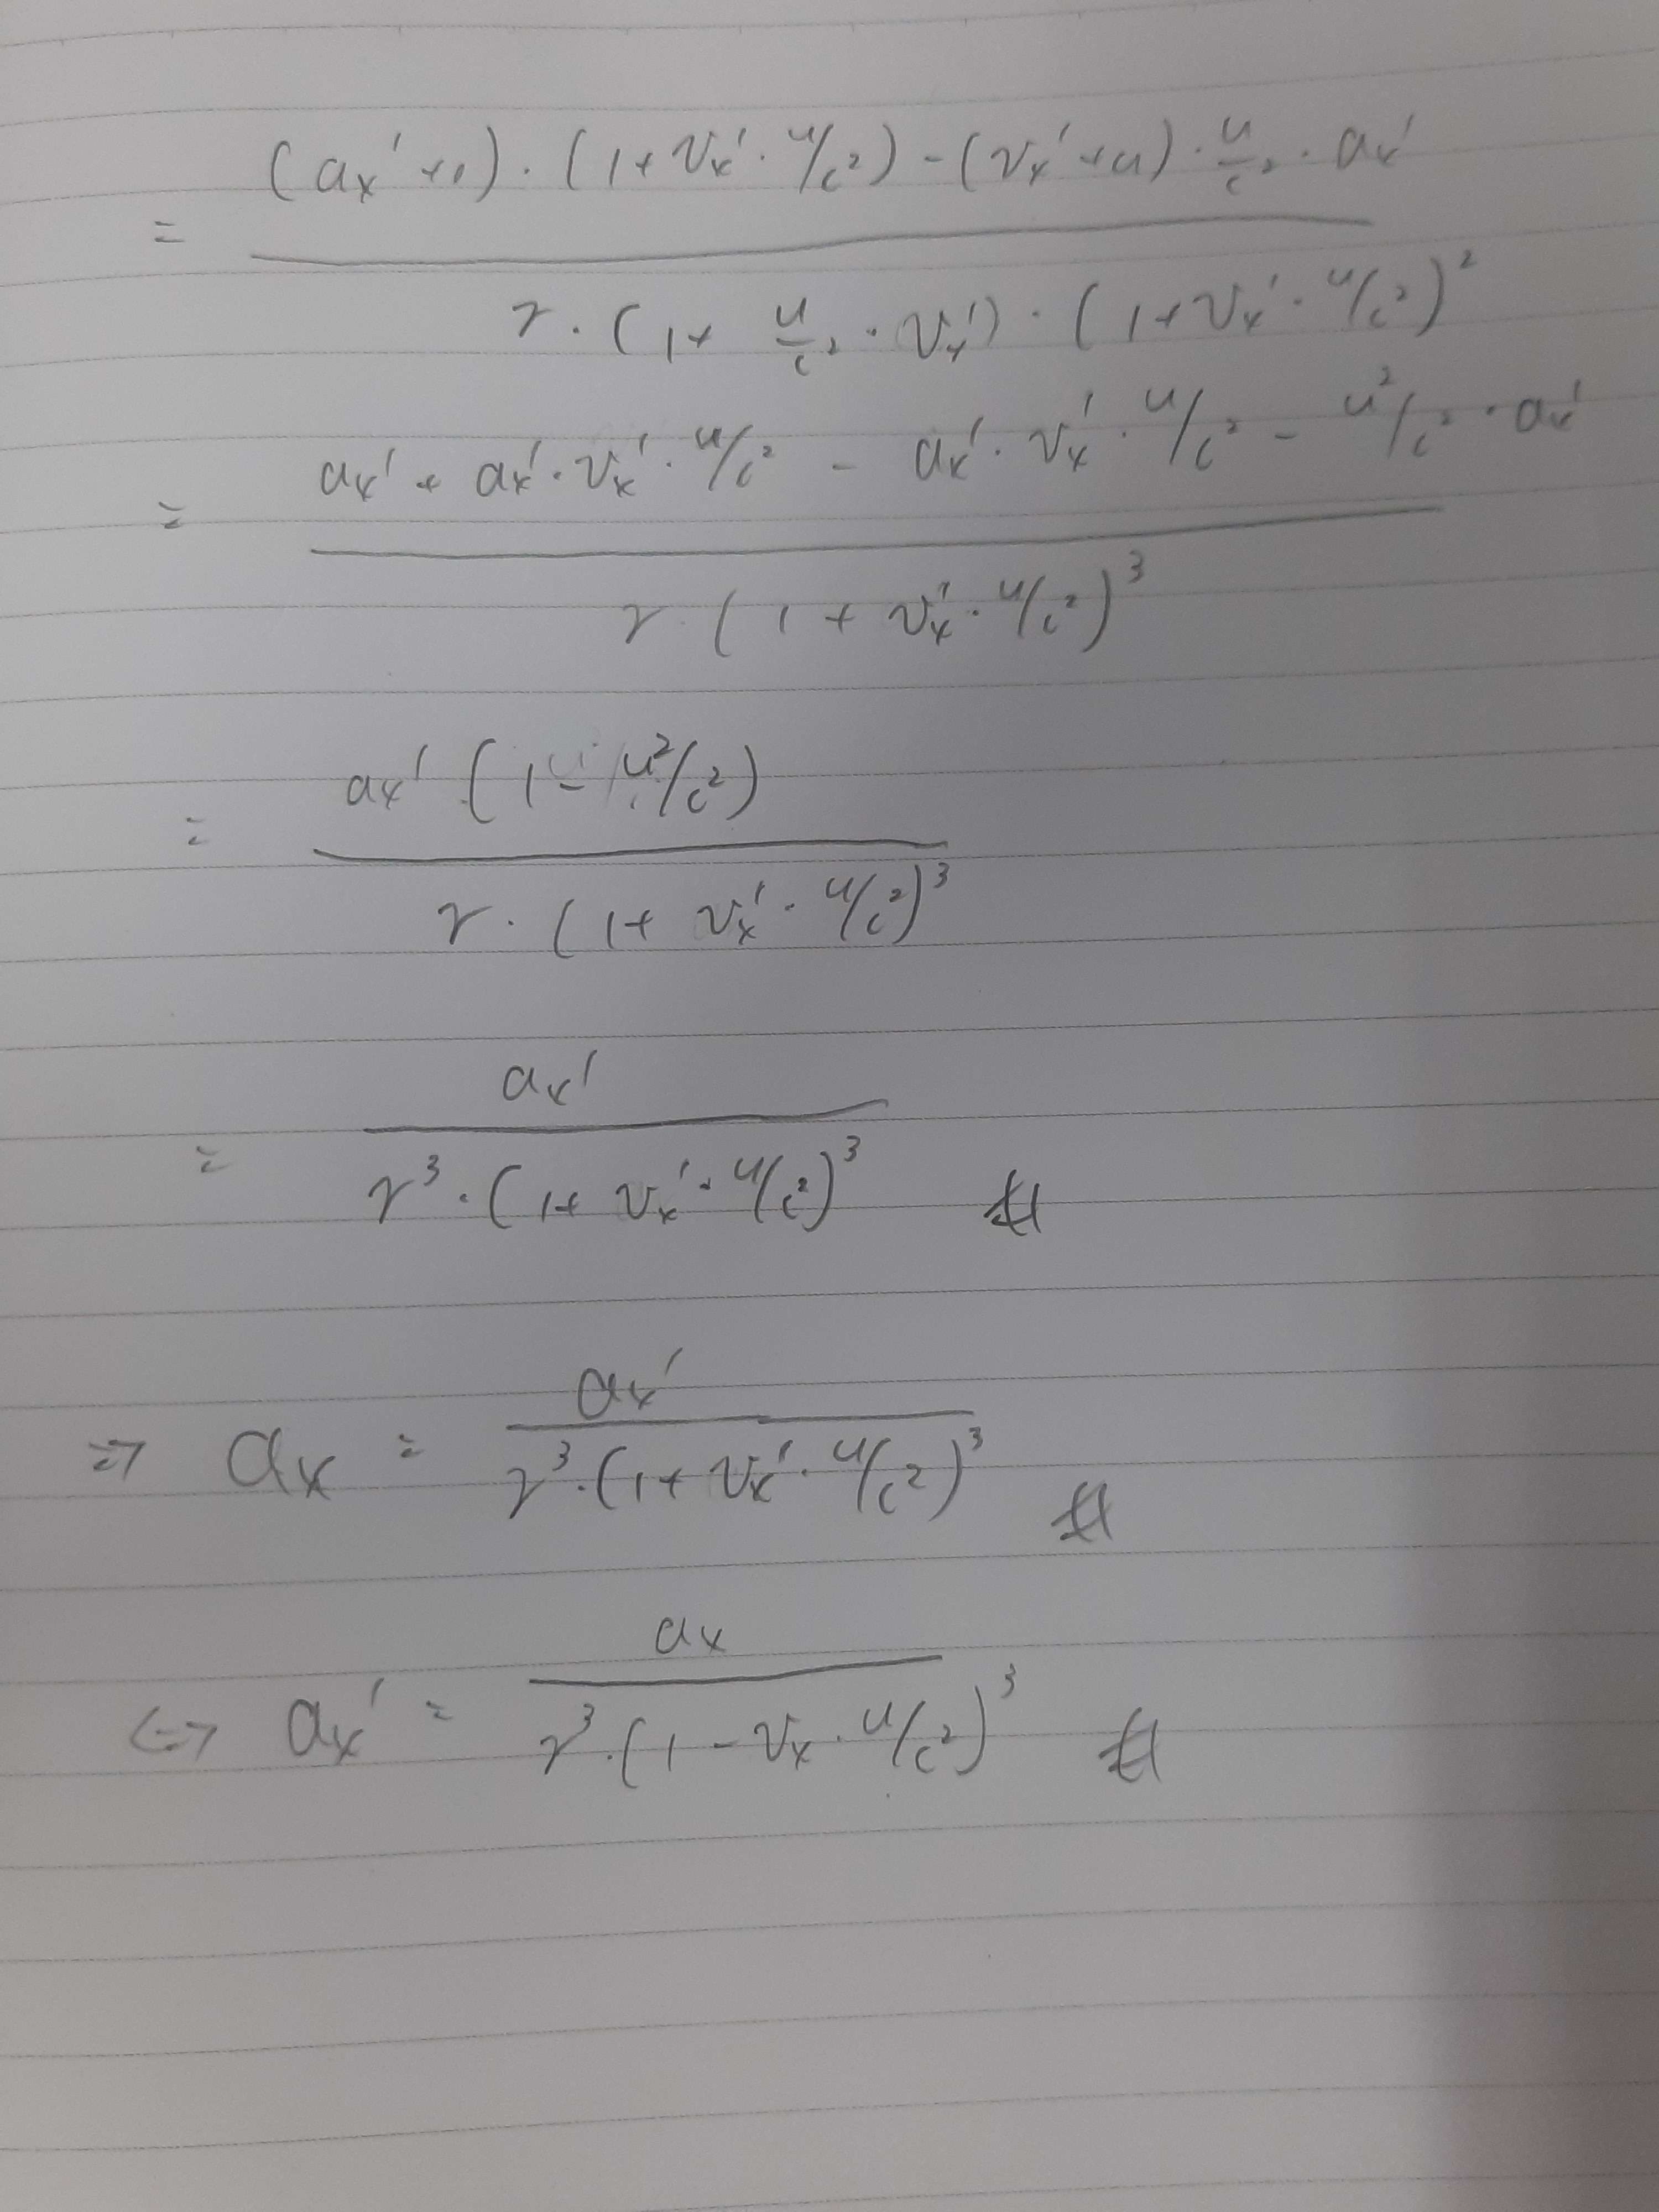 = ((ax' + 0) · (1 + vx' · u/c²) - (vx' + u) · u/c² · ax') / (γ · (1 + u/c² · vx') · (1 + vx' · u/c²)²)
= (ax' + ax' · vx' · u/c² - ax' · vx' · u/c² - u²/c² · ax') / (γ · (1 + vx' · u/c²)³)
= (ax' (1 - u²/c²)) / (γ · (1 + vx' · u/c²)³)
= ax' / (γ³ · (1 + vx' · u/c²)³) #
⇒ ax = ax' / (γ³ · (1 + vx' · u/c²)³) #
⇔ ax' = ax / (γ³ · (1 - vx · u/c²)³) #